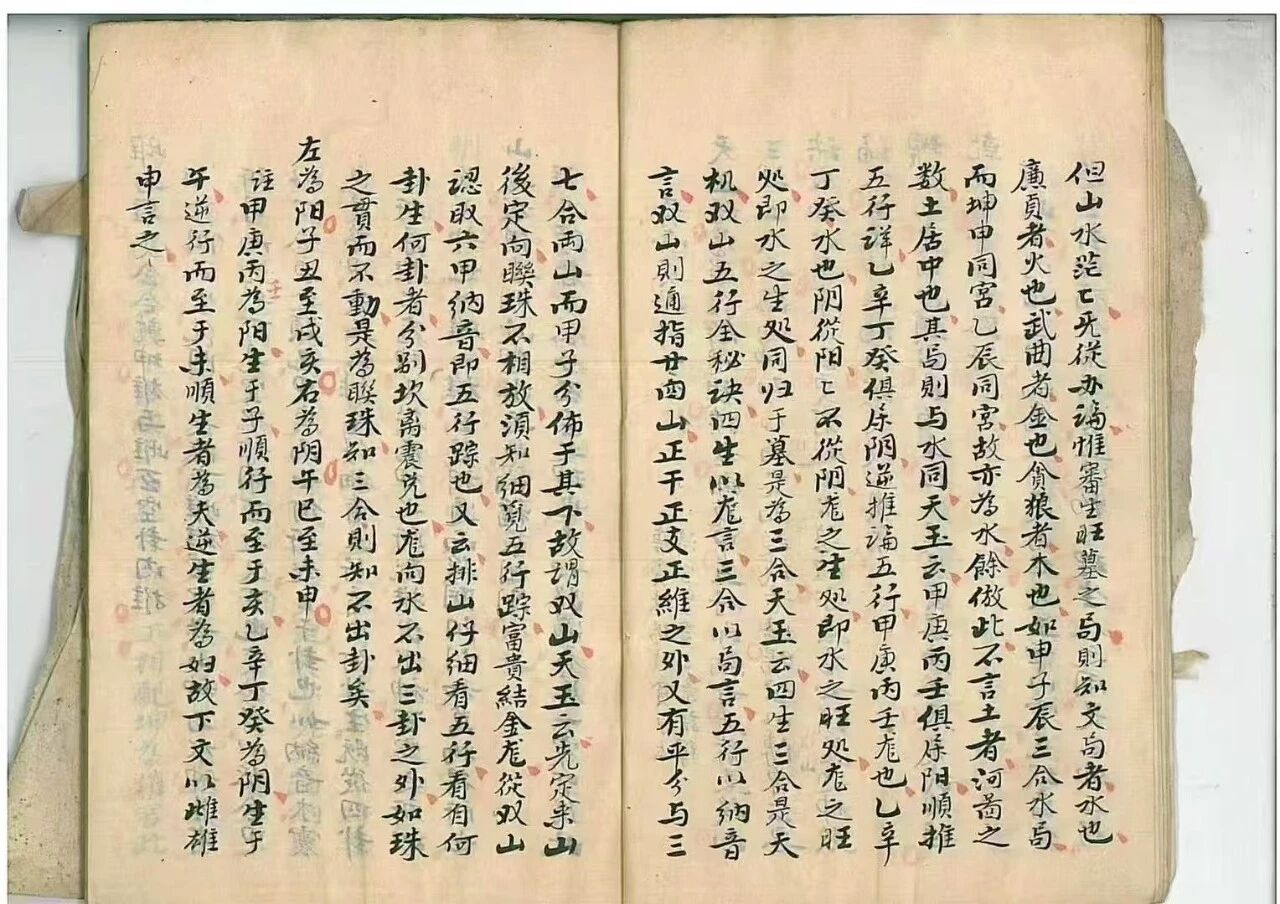 但山水茫匕旡從办论惟審生旺墓之局則知文曲者水也
廉貞者火也武曲者金也貪狼者木也如申子辰三合水局
而坤申同宮乙辰同宮故亦為水餘倣此不言土者河啚之
数土居中也其局則与水同天玉云甲庚丙壬俱属阳順推
五行详乙辛丁癸俱属阴逆推论五行甲庚丙壬龙也乙辛
丁癸水也阴從阳匕不從阴龙之生处即水之旺处龙之旺
处即水之生处同归于墓是為三合天玉云四生三合是天
机双山五行全秘诀四生以龙言三合以局言五行以纳音
言双山則通指廿四山正干正支正維之外又有平分与三
七合両山而甲子分佈于其下故謂双山天玉云先定来山
後定向聫珠不相放須知细覔五行踪富貴結金龙從双山
認取六甲纳音即五行踪也又云排山仔细看五行看自何
卦生何卦者分别坎离震兑也龙向水不出三卦之外如珠
之貫而不動是為聫珠知三合則知不出卦矣
左為阳子丑至戍亥右為阴午巳至未申
註甲庚丙壬為阳生于子順行而至于亥乙辛丁癸為阴生于
午逆行而至于未順生者為夫逆生者為妇故下文以雌雄
申言之